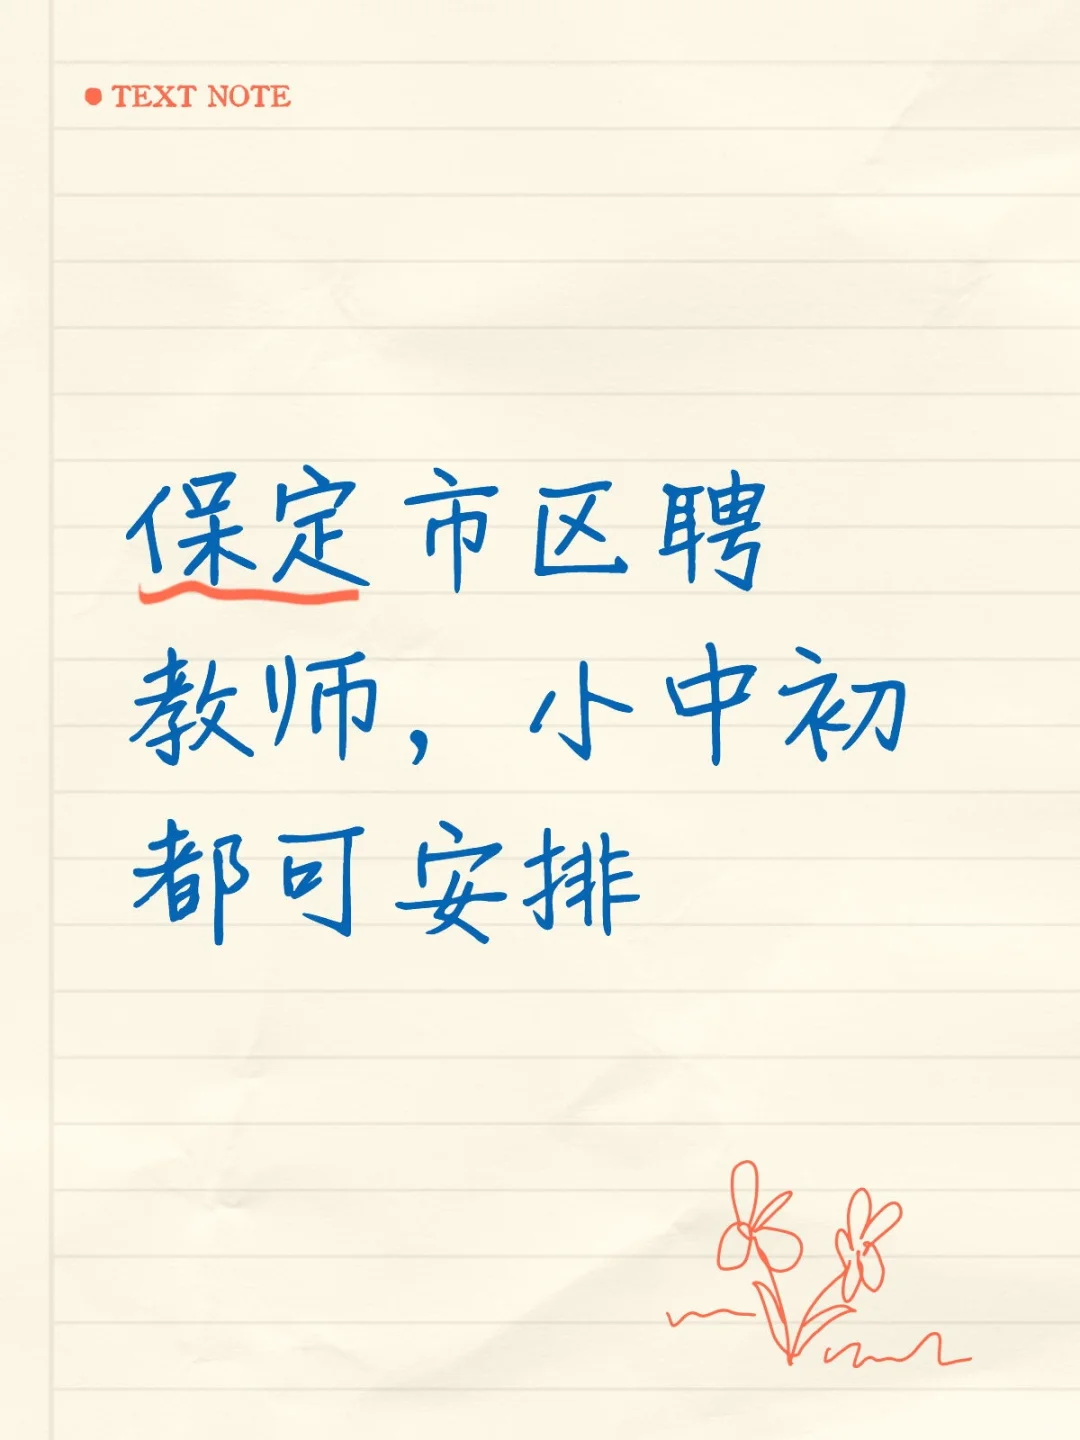 TEXT NOTE
保定市区聘
教师，小中初
都可安排